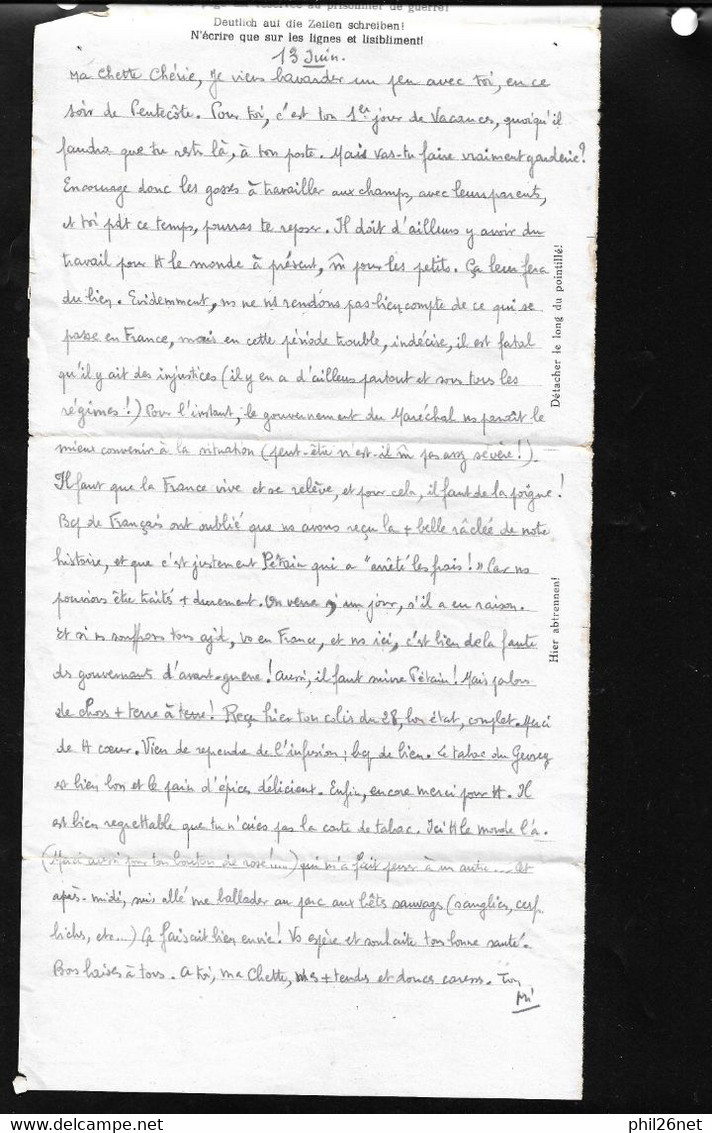 réservée au prisonnier de guerre!
Deutlich auf die Zeilen schreiben!
N'écrire que sur les lignes et lisiblement!
13 Juin.
Ma Chette Chérie, Je viens bavarder un peu avec toi, en ce
soir de Pentecôte. Pour toi, c'est ton 1er jour de Vacances, quoiqu'il
faudra que tu restes là, à ton poste. Mais vas-tu faire vraiment garderie?
Encourage donc les gosses à travailler aux champs, avec leurs parents,
et toi pdt ce temps, pourras te reposer. Il doit d'ailleurs y avoir du
travail pour tt le monde à présent, m̂ pour les petits. Ça leur fera
du bien. Evidemment, ns ne ns rendons pas bien compte de ce qui se
passe en France, mais en cette période trouble, indécise, il est fatal
qu'il y ait des injustices (il y en a d'ailleurs partout et sous tous les
régimes!) Pour l'instant, le gouvernement du Maréchal ns paraît le
mieux convenir à la situation (peut-être n'est-il m̂ pas assez sévère!).
Il faut que la France vive et se relève, et pour cela, il faut de la poigne!
Bcp de Français ont oublié que ns avons reçu la + belle râclée de notre
histoire, et que c'est justement Pétain qui a "arrêté les frais!" Car ns
pouvions être traités + durement. On verra, un jour, s'il a eu raison.
Et si ns souffrons tous ajd, vs en France, et ns ici, c'est bien de la faute
ds gouvernants d'avant-guerre! Aussi, il faut suivre Pétain! Mais parlons
de choses + terre à terre! Reçu hier ton colis du 28, bon état, complet. Merci
de tt cœur. Viens de reprendre de l'infusion; bcp de bien. Le tabac du
est bien bon et le pain d'épices délicieux. Enfin, encore merci pour tt. Il
est bien regrettable que tu n'aies pas la carte de tabac. Ici tt le monde l'a.
(Merci aussi pour ton bouton de rose!....) qui m'a fait penser à un autre... Cet
après-midi, suis allé me ballader au parc aux bêtes sauvages (sangliers, cerfs,
biches, etc...) Ça faisait bien envie! Vs espère et souhaite tous bonne santé.
Bons baisers à tous. A toi, ma Chette, mes + tendres et douces caresses. Ton
Détacher le long du pointillé!
Hier abtrennen!
phil26net